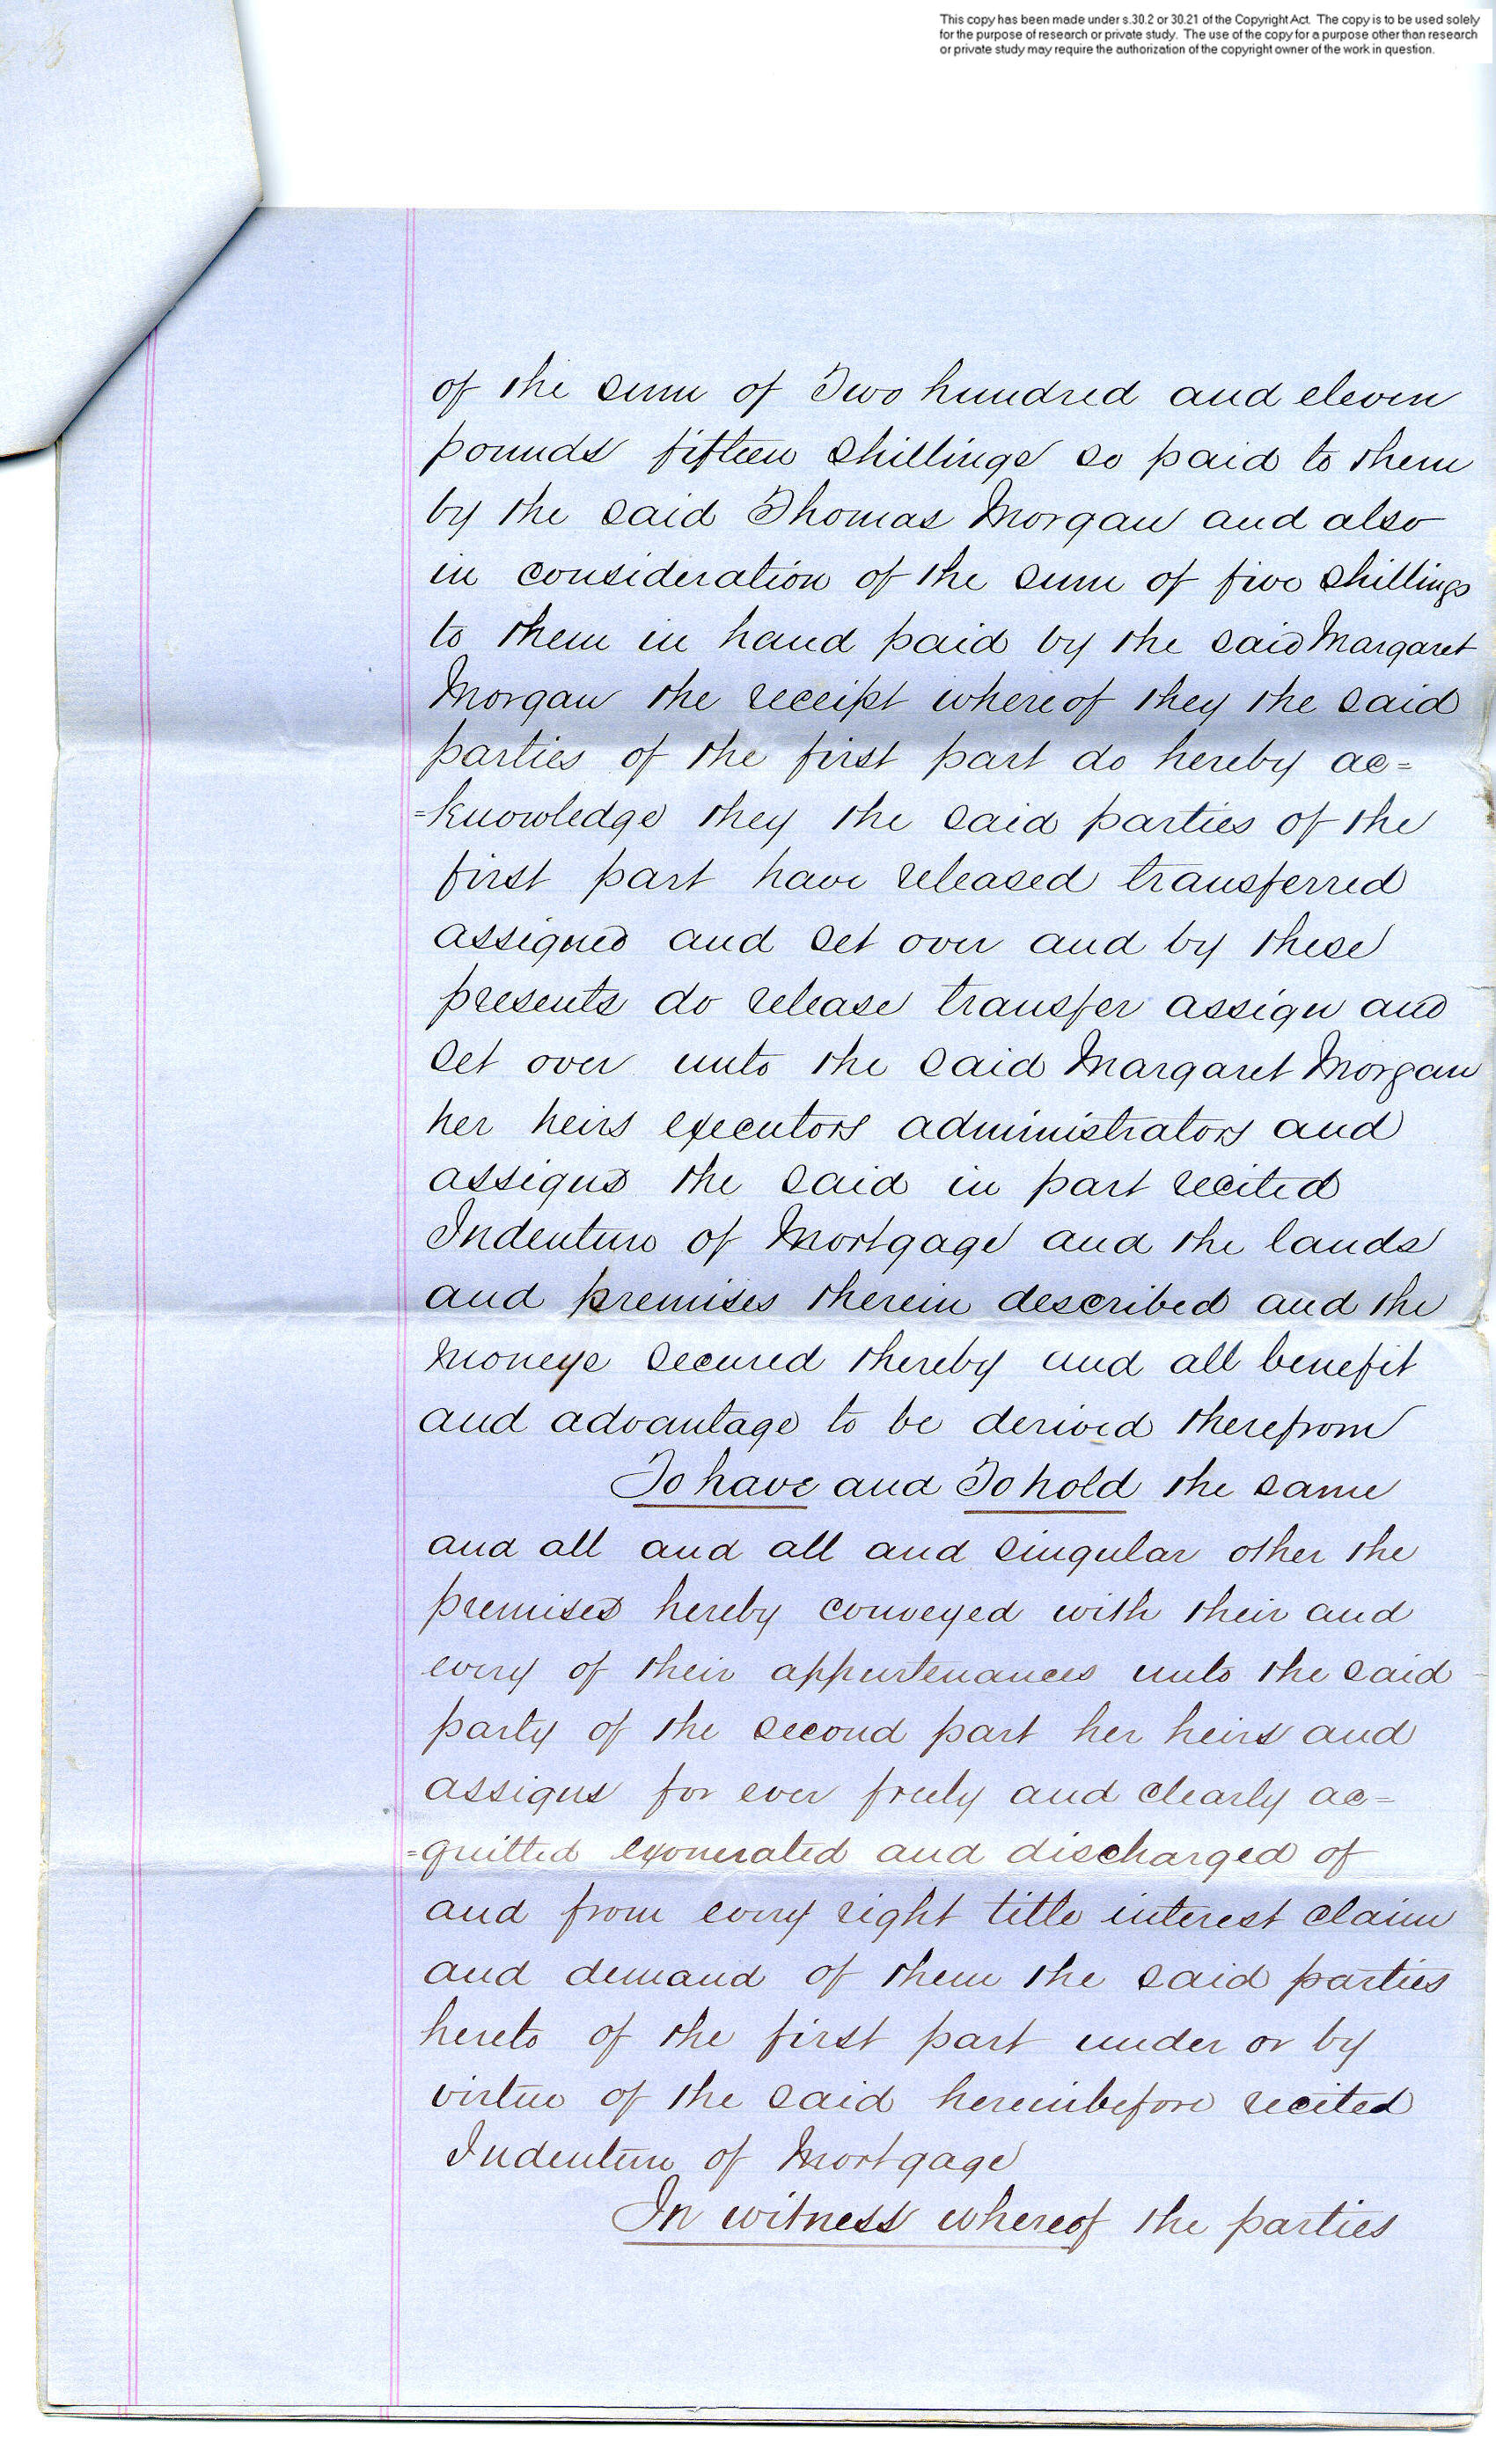 This copy has been made under s.30.2 or 30.21 of the Copyright Act. The copy is to be used solely
for the purpose of research or private study. The use of the copy for a purpose other than research
or private study may require the authorization of the copyright owner of the work in question.
of the sum of Two hundred and eleven
pounds fifteen shillings so paid to them
by the said Thomas Morgan and also
in consideration of the sum of five shillings
to them in hand paid by the said Margaret
Morgan the receipt whereof they the said
parties of the first part do hereby ac=
=knowledge they the said parties of the
first part have released transferred
assigned and set over and by these
presents do release transfer assign and
set over unto the said Margaret Morgan
her heirs executors administrators and
assigns the said in part recited
Indenture of Mortgage and the lands
and premises therein described and the
moneys secured thereby and all benefit
and advantage to be derived therefrom
To have and To hold the same
and all and all and singular other the
premises hereby conveyed with their and
every of their appurtenances unto the said
party of the second part her heirs and
assigns for ever freely and clearly ac=
=quitted exonerated and discharged of
and from every right title interest claim
and demand of them the said parties
hereto of the first part under or by
virtue of the said hereinbefore recited
Indenture of Mortgage
In witness whereof the parties